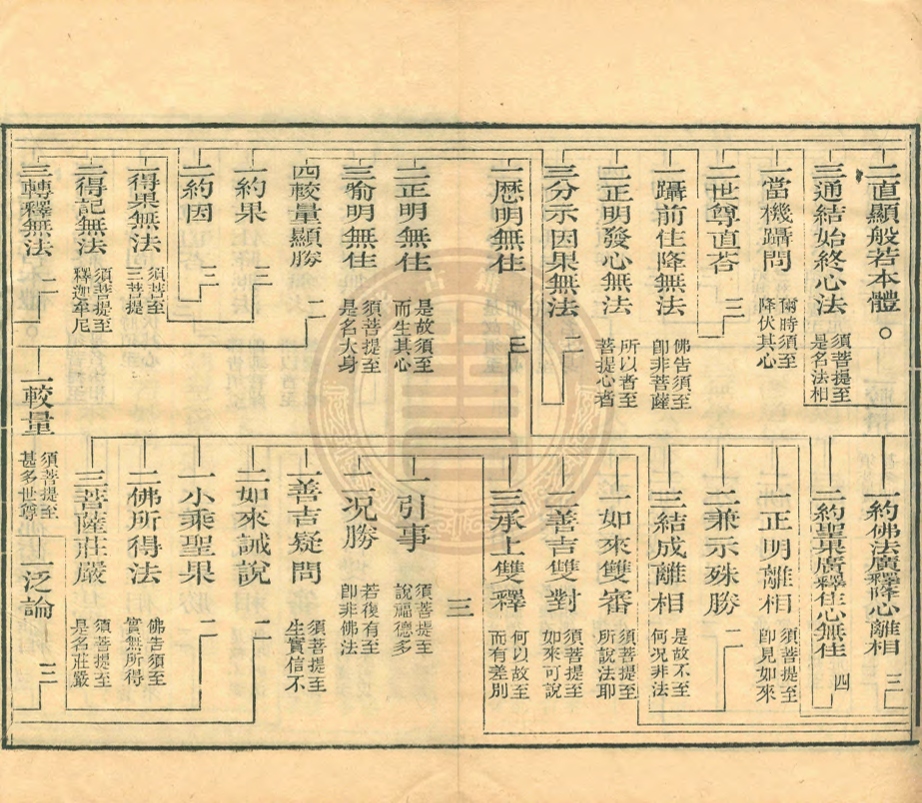 二直顯般若本體。
三通結始終心法 須菩提至是名法相
一當機躡問 爾時須至降伏其心
二世尊直荅 三
一躡前住降無法 佛告須至卽非菩薩
二正明發心無法 所以者至菩提心者
三分示因果無法 二
一歷明無住 三
二正明無住 是故須至而生其心
三喻明無住 須菩提至是名大身
四較量顯勝 二
一約果 三
二約因 三
一得果無法 須菩至三菩提
二得記無法 須菩提至釋迦牟尼
三轉釋無法 二
一約佛法廣釋降心離相 三
二約聖果廣釋住心無住 四
一正明離相 須菩提至卽見如來
二兼示殊勝 二
三結成離相 是故不至何况非法
一如來雙審 須菩提至所說法耶
二善吉雙對 須菩提至如來可說
三承上雙釋 何以故至而有差別
一引事 須菩提至說福德多
三
二况勝 若復有至卽非佛法
一善吉疑問 須菩提至生實信不
二如來誡說 二
一小乘聖果 二
二佛所得法 佛告須至實無所得
三菩薩莊嚴 須菩提至是名莊嚴
一較量 須菩提至甚多世尊
一泛論 三